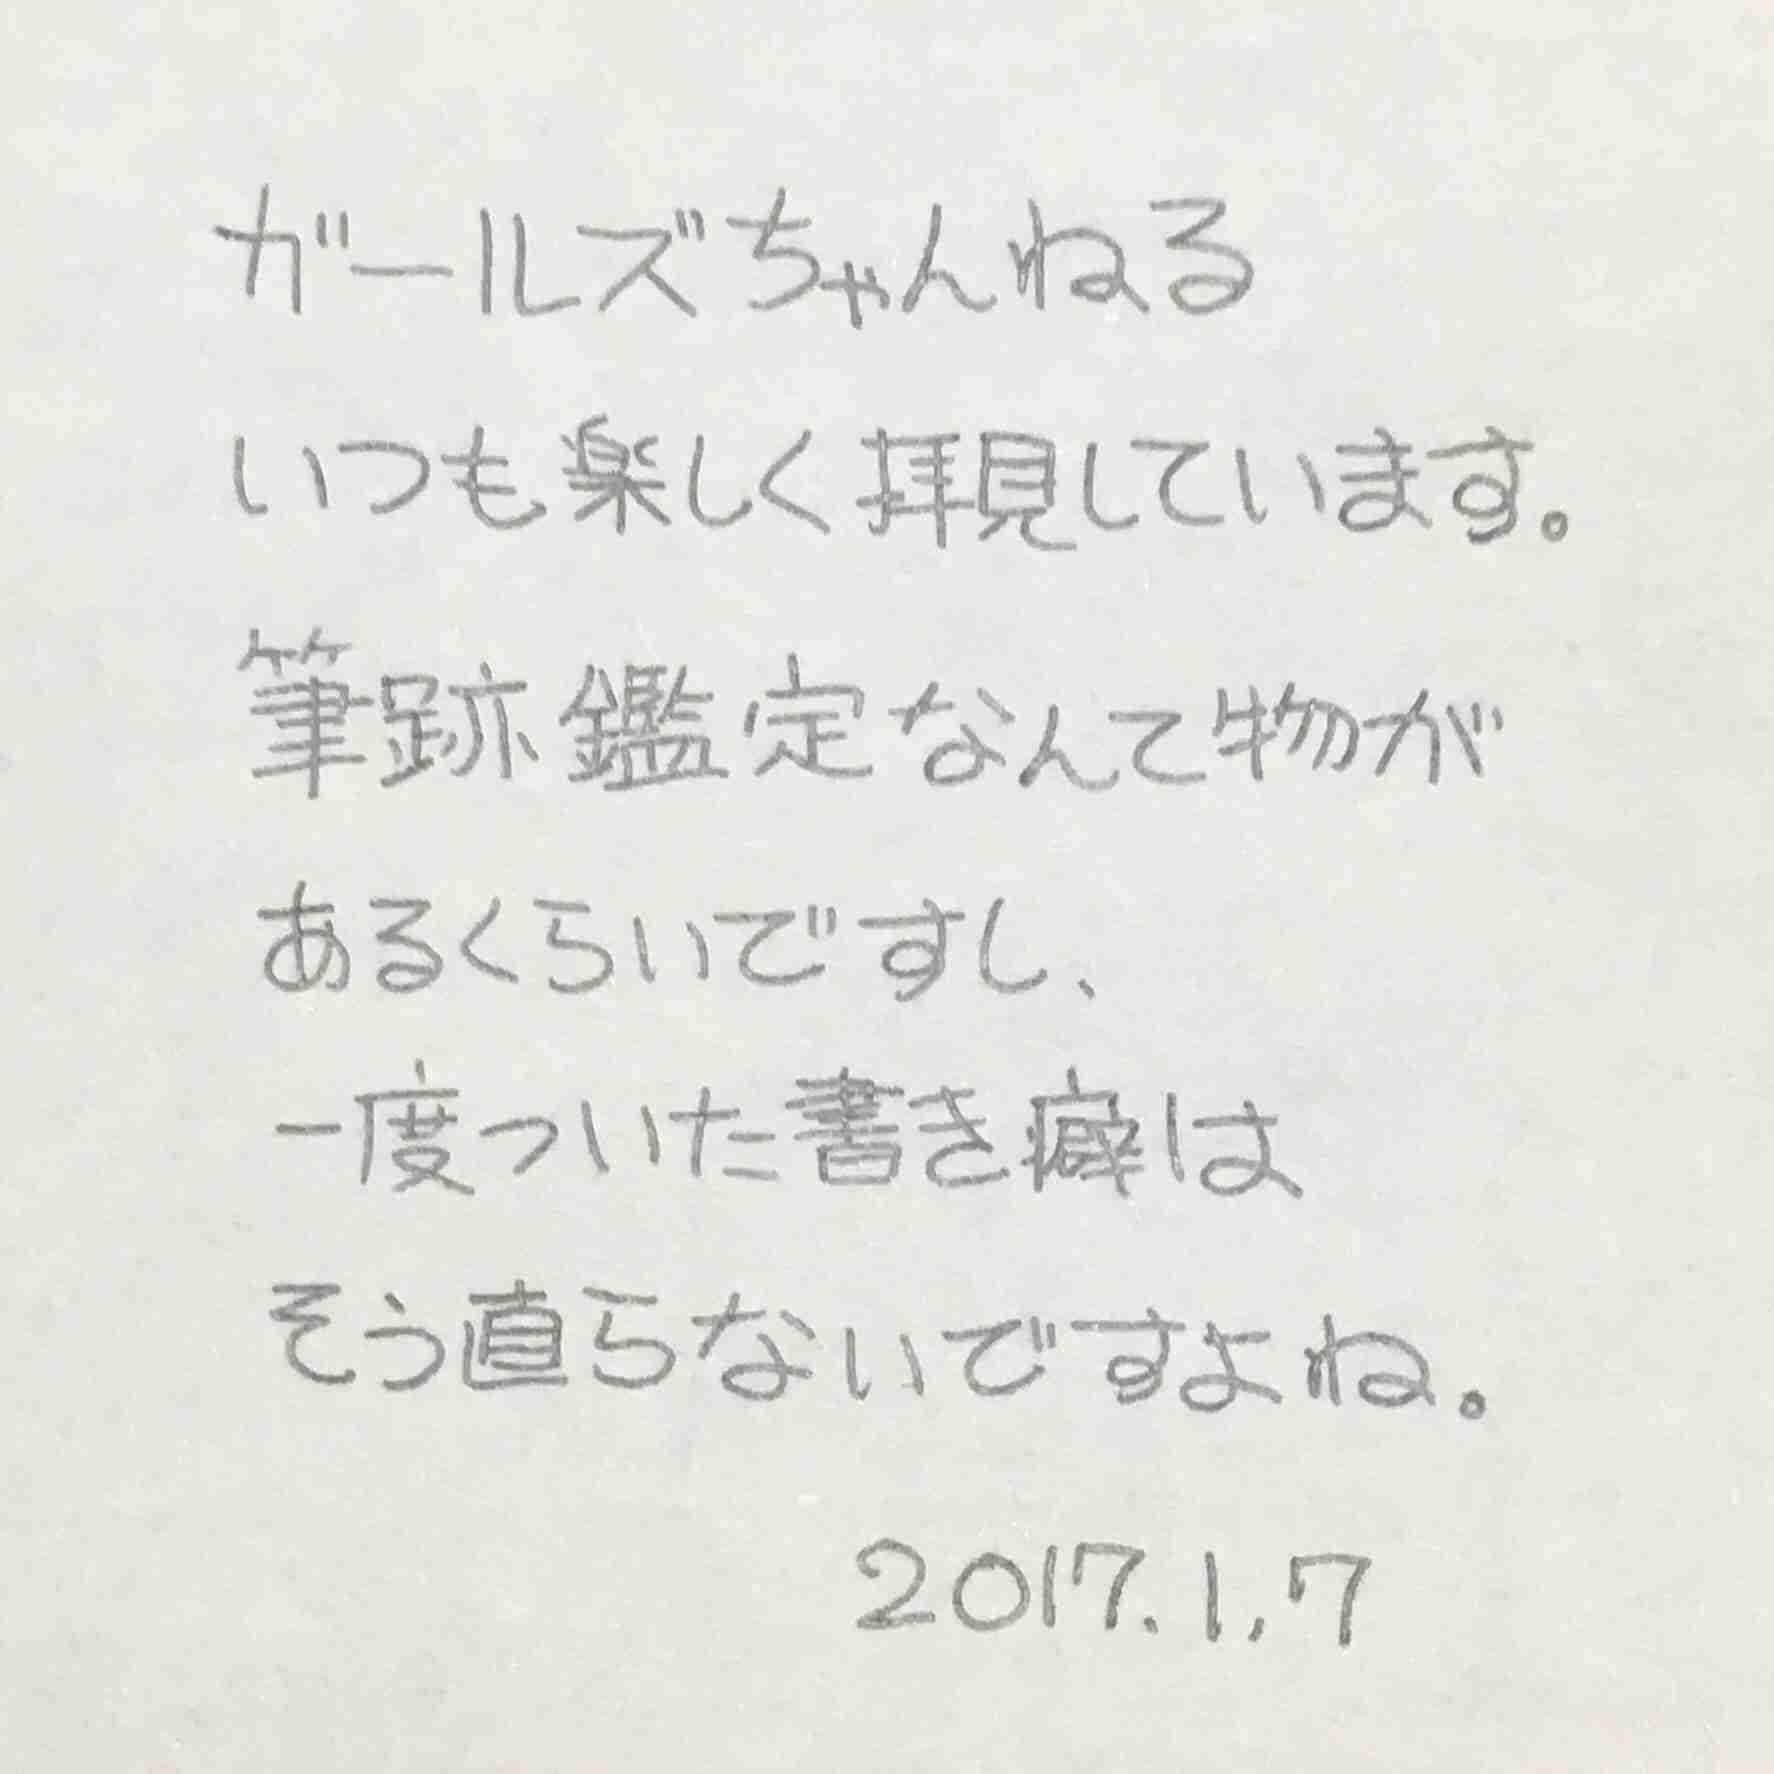 ガールズちゃんねる
いつも楽しく拝見しています。
筆跡鑑定なんて物が
あるくらいですし、
一度ついた書き癖は
そう直らないですよね。
2017.1.7